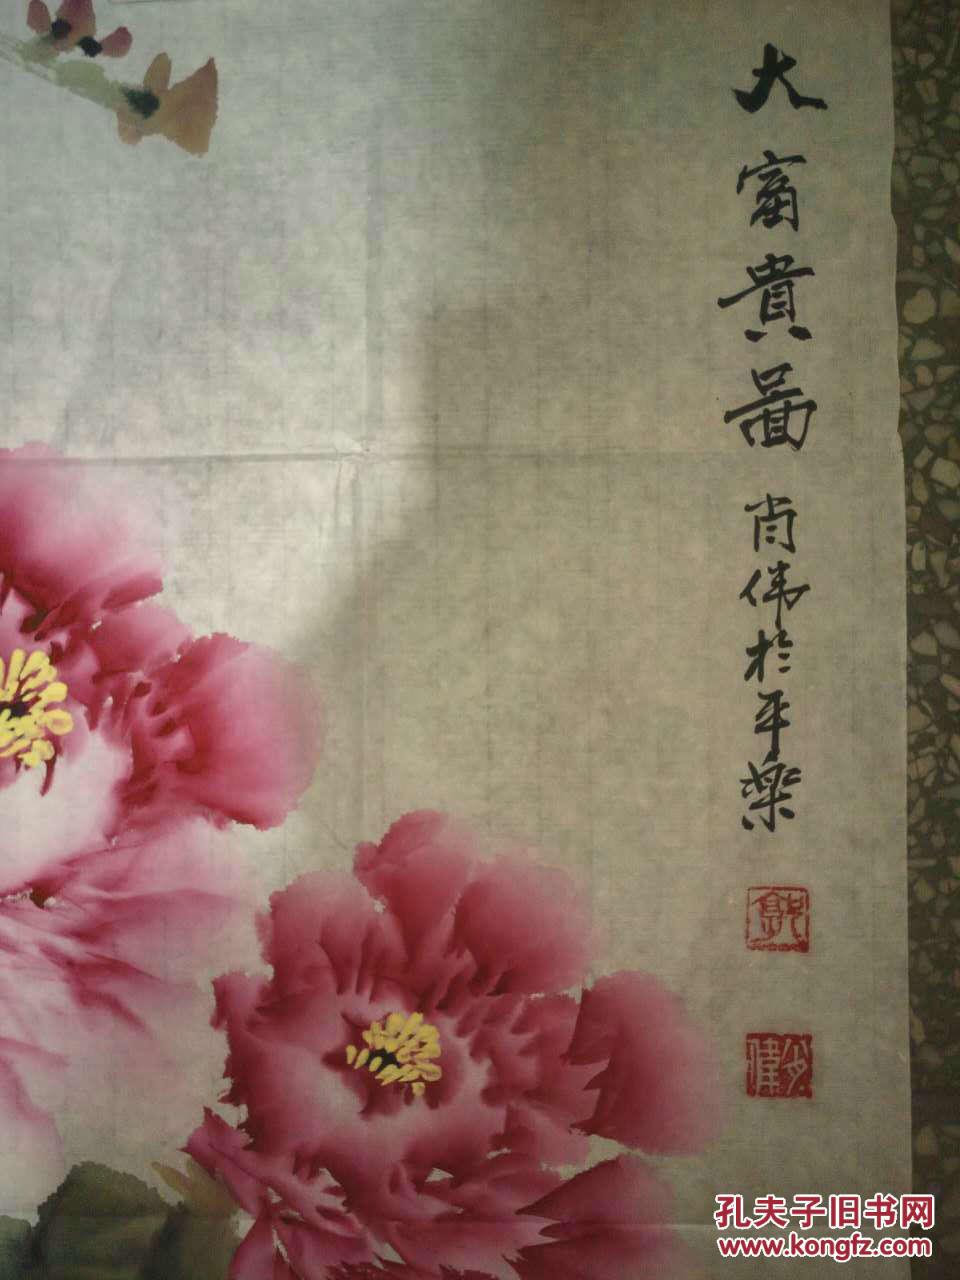 大富貴啚 肖伟於平樂
孔夫子旧书网
www.kongfz.com